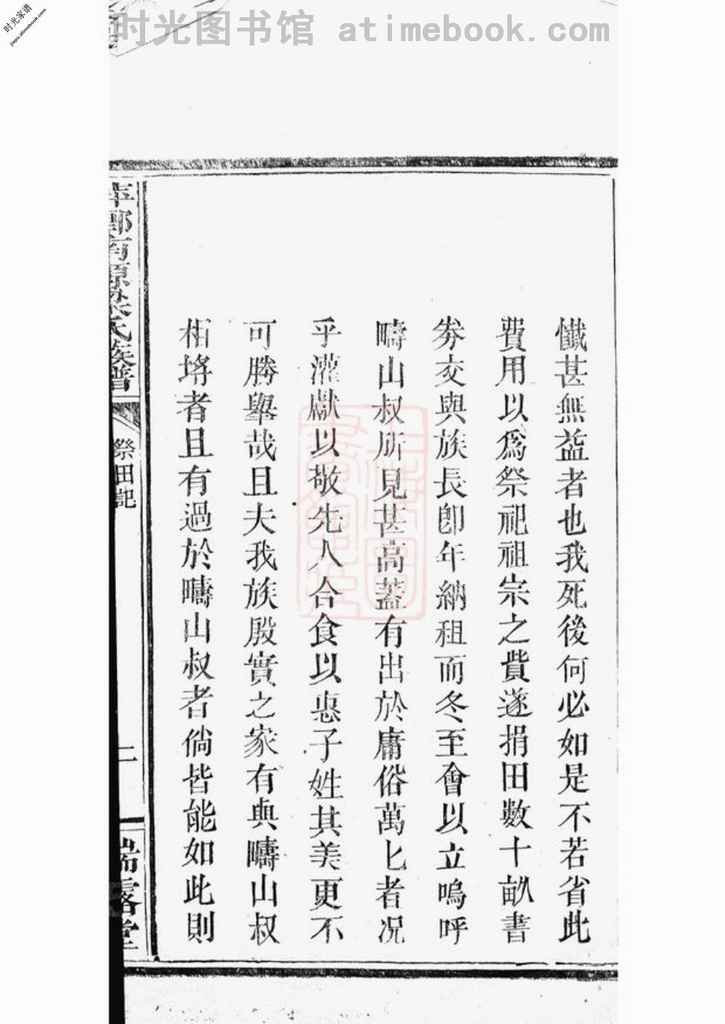 时光图书馆 atimebook.com
时光家谱
懺甚無益者也我死後何必如是不若省此
費用以爲祭祀祖宗之費遂捐田數十畝書
劵交與族長卽年納租而冬至會以立嗚呼
疇山叔所見甚高蓋有出於庸俗萬匕者况
乎灌獻以敬先人合食以惠子姓其美更不
可勝舉哉且夫我族殷實之家有與疇山叔
相埓者且有過於疇山叔者倘皆能如此則
萍鄉南源梁氏族譜
祭田記
二
瑞露堂